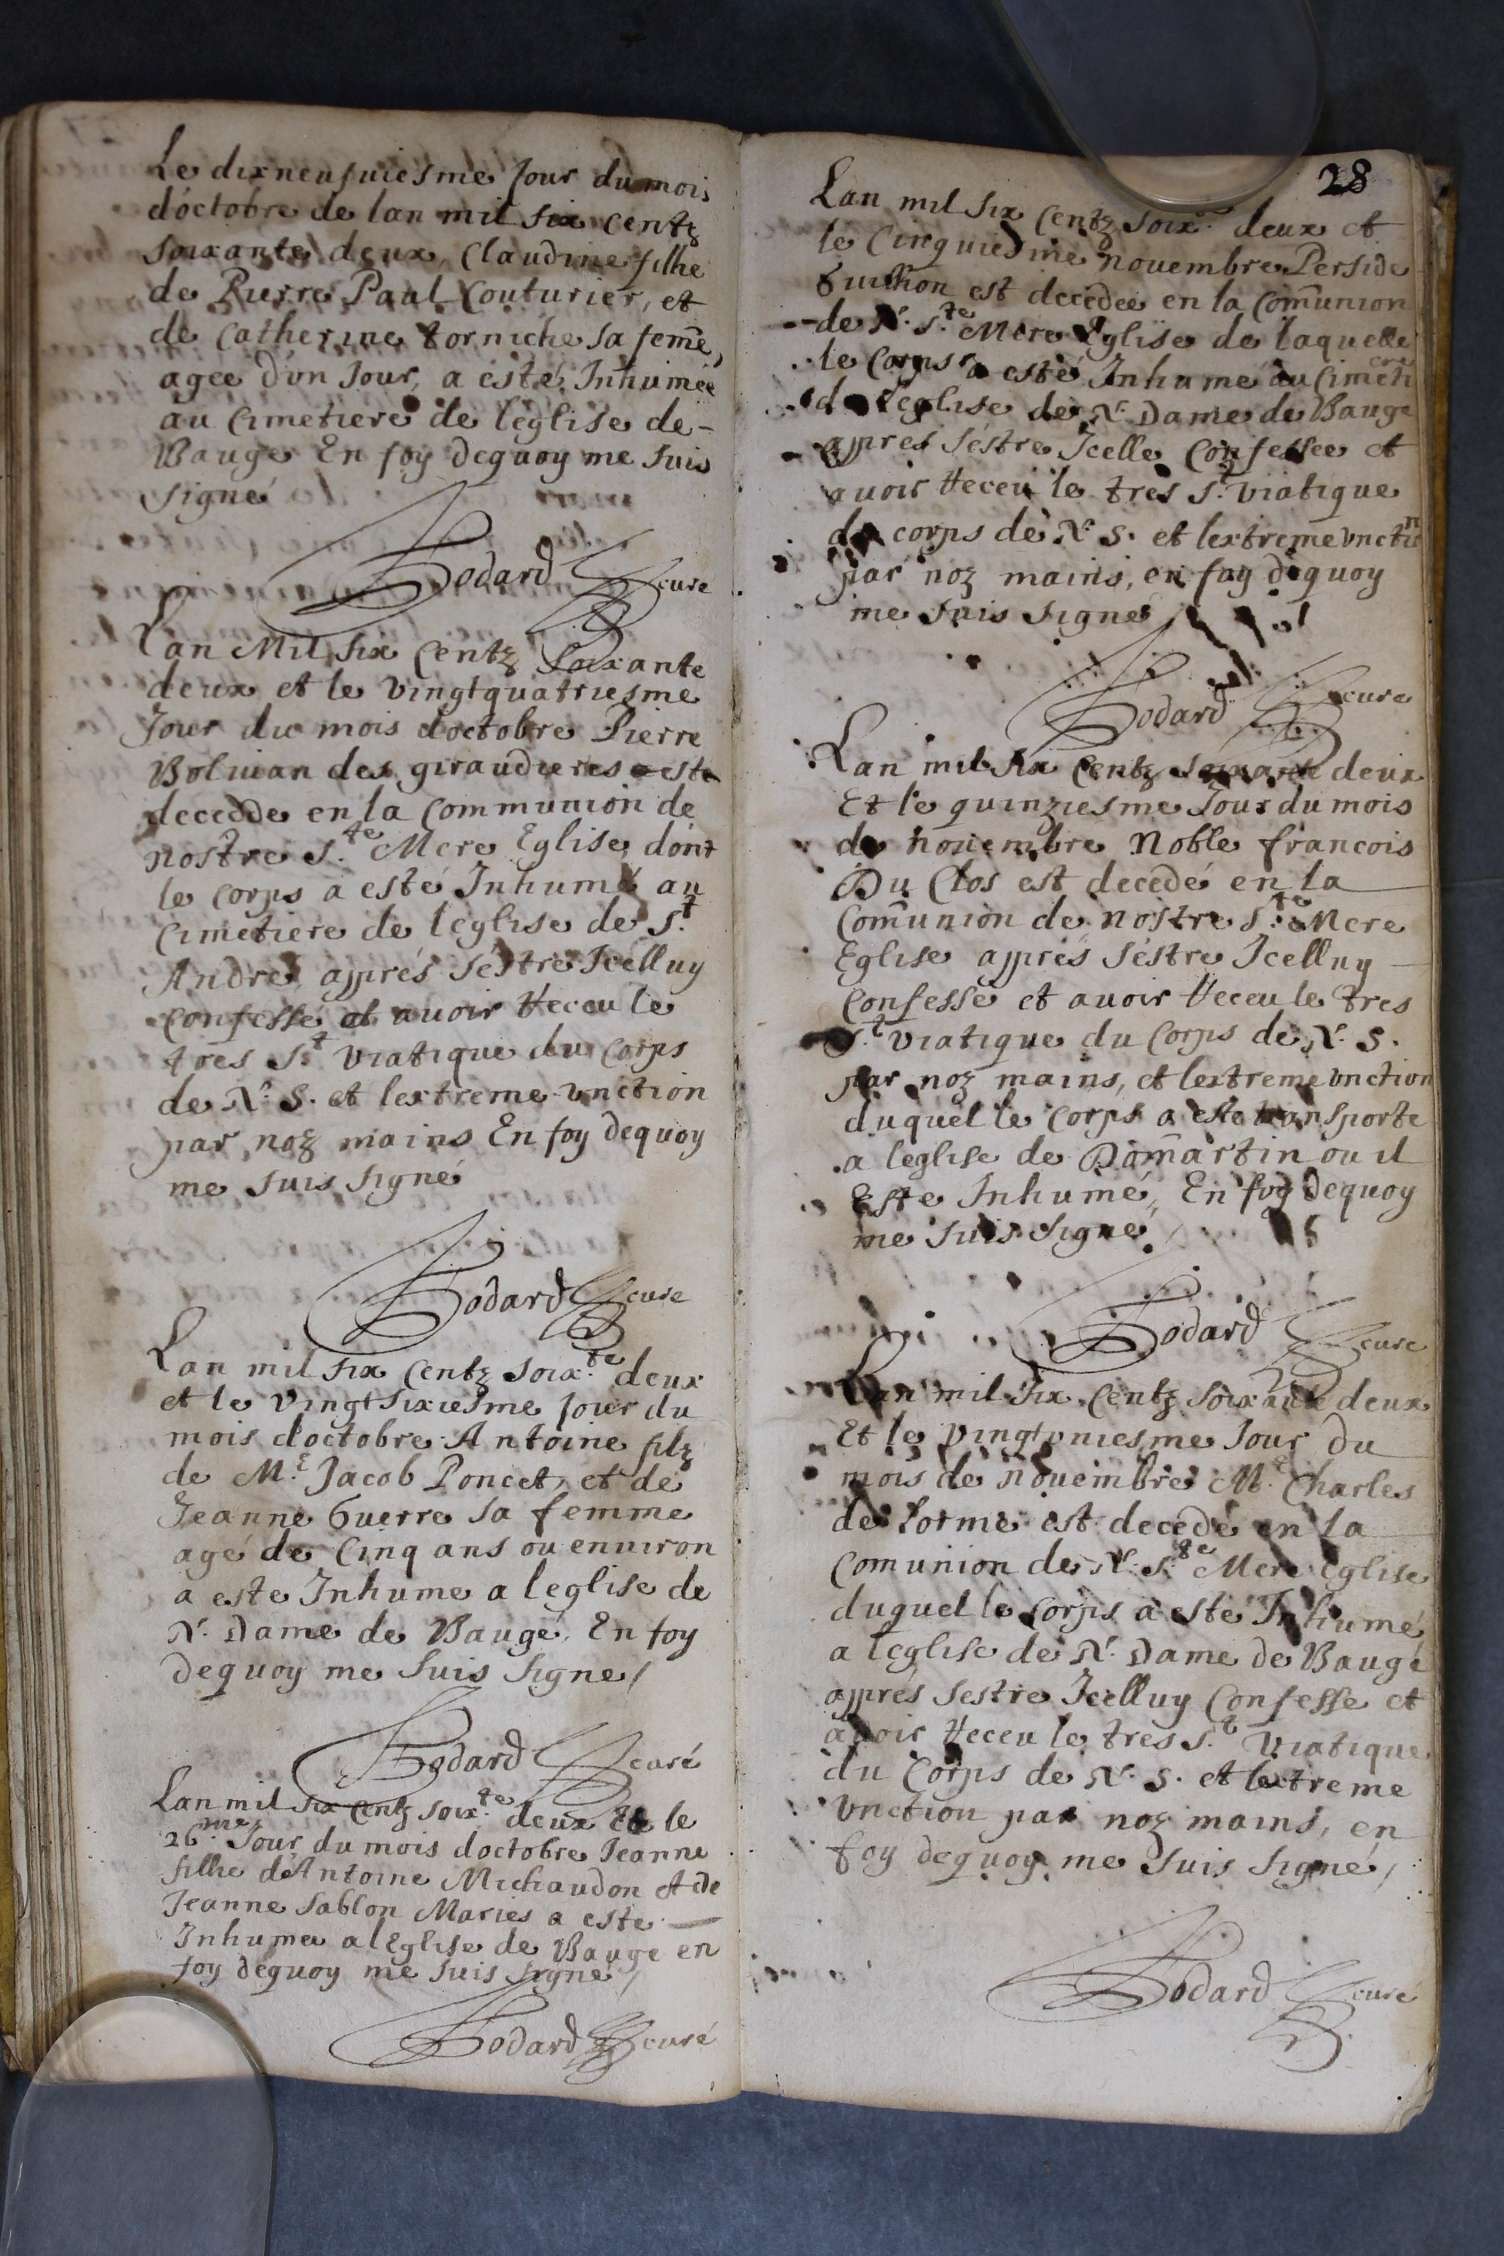 Le dixneufuiesme Jour du mois
d'octobre de lan mil six centz
soixante deux, Claudine filhe
de Pierre Paul Couturier, et
de Catherine torniche sa feme,
agee d'un Jour, a esté Inhumée
au cimetiere de léglise de-
Bauge En foy dequoy me suis
signé
Godard cure
Lan Mil six centz soixante
deux et le vingtquatriesme
Jour du mois doctobre Pierre
Boliuan des giraudieres este
decedde en la communion de
nostre S.te Mere Eglise, dont
le corps a esté Inhumé au
cimetiere de léglise de S.t
Andre, apprés séstre Icelluy
confessé et auoir Receu le
tres St viatique du corps
de N. S. et lextreme unction
par noz mains En foy dequoy
me suis signé
Godard cure
Lan mil six centz soix.te deux
et le vingtsixiesme jour du
mois doctobre Antoine filz
de M.e Jacob Poncet, et de
Jeanne Guerre sa femme
agé de cinq ans ou enuiron
a este Inhume a leglise de
N. Dame de Baugé, En foy
dequoy me suis signe/
Godard curé
Lan mil six centz soix.te deux Et le
26.me Jour du mois doctobre Jeanne
filhe dAntoine Michaudon et de
Jeanne Sablon Maries a este
Inhumee a lEglise de Bauge en
foy dequoy me suis signé/
Godard curé
28
Lan mil six centz soix.te deux et
le cinquiesme nouembre Perside
Guillion est decedee en la comunion
de N. S.te Mere Eglise de laquelle
le corps a esté Inhumé au cimetiere
de léglise de N. Dame de Bauge
appres séstre Icelle confessee et
auoir Receu le tres St viatique
du corps de N. S. et lextreme unctin
par noz mains, en foy dequoy
me suis signé
Godard cure
Lan mil six centz soixante deux
Et le quinziesme Jour du mois
de nouembre Noble francois
Du Clos est decedé en la
comunion de nostre S.te Mere
Eglise apprés séstre Icelluy
confessé et auoir Receu le tres
S.t viatique du corps de N. S.
par noz mains, et lextreme unction
duquel le corps a este transporte
a leglise de Domartin ou il
Este Inhumé, En foy dequoy
me suis signe
Godard cure
Lan mil six centz soixante deux
Et le vingtuniesme Jour du
mois de nouembre M.e Charles
de lorme est decedé en la
comunion de N. S.te Mere Eglise
duquel le corps a esté Inhumé
a leglise de N. Dame de Baugé
apprés sestre Icelluy confesse et
auoir Receu le tres S.t viatique
du corps de N. S. et lextreme
unction par noz mains, en
foy dequoy me suis signé/
Godard curé